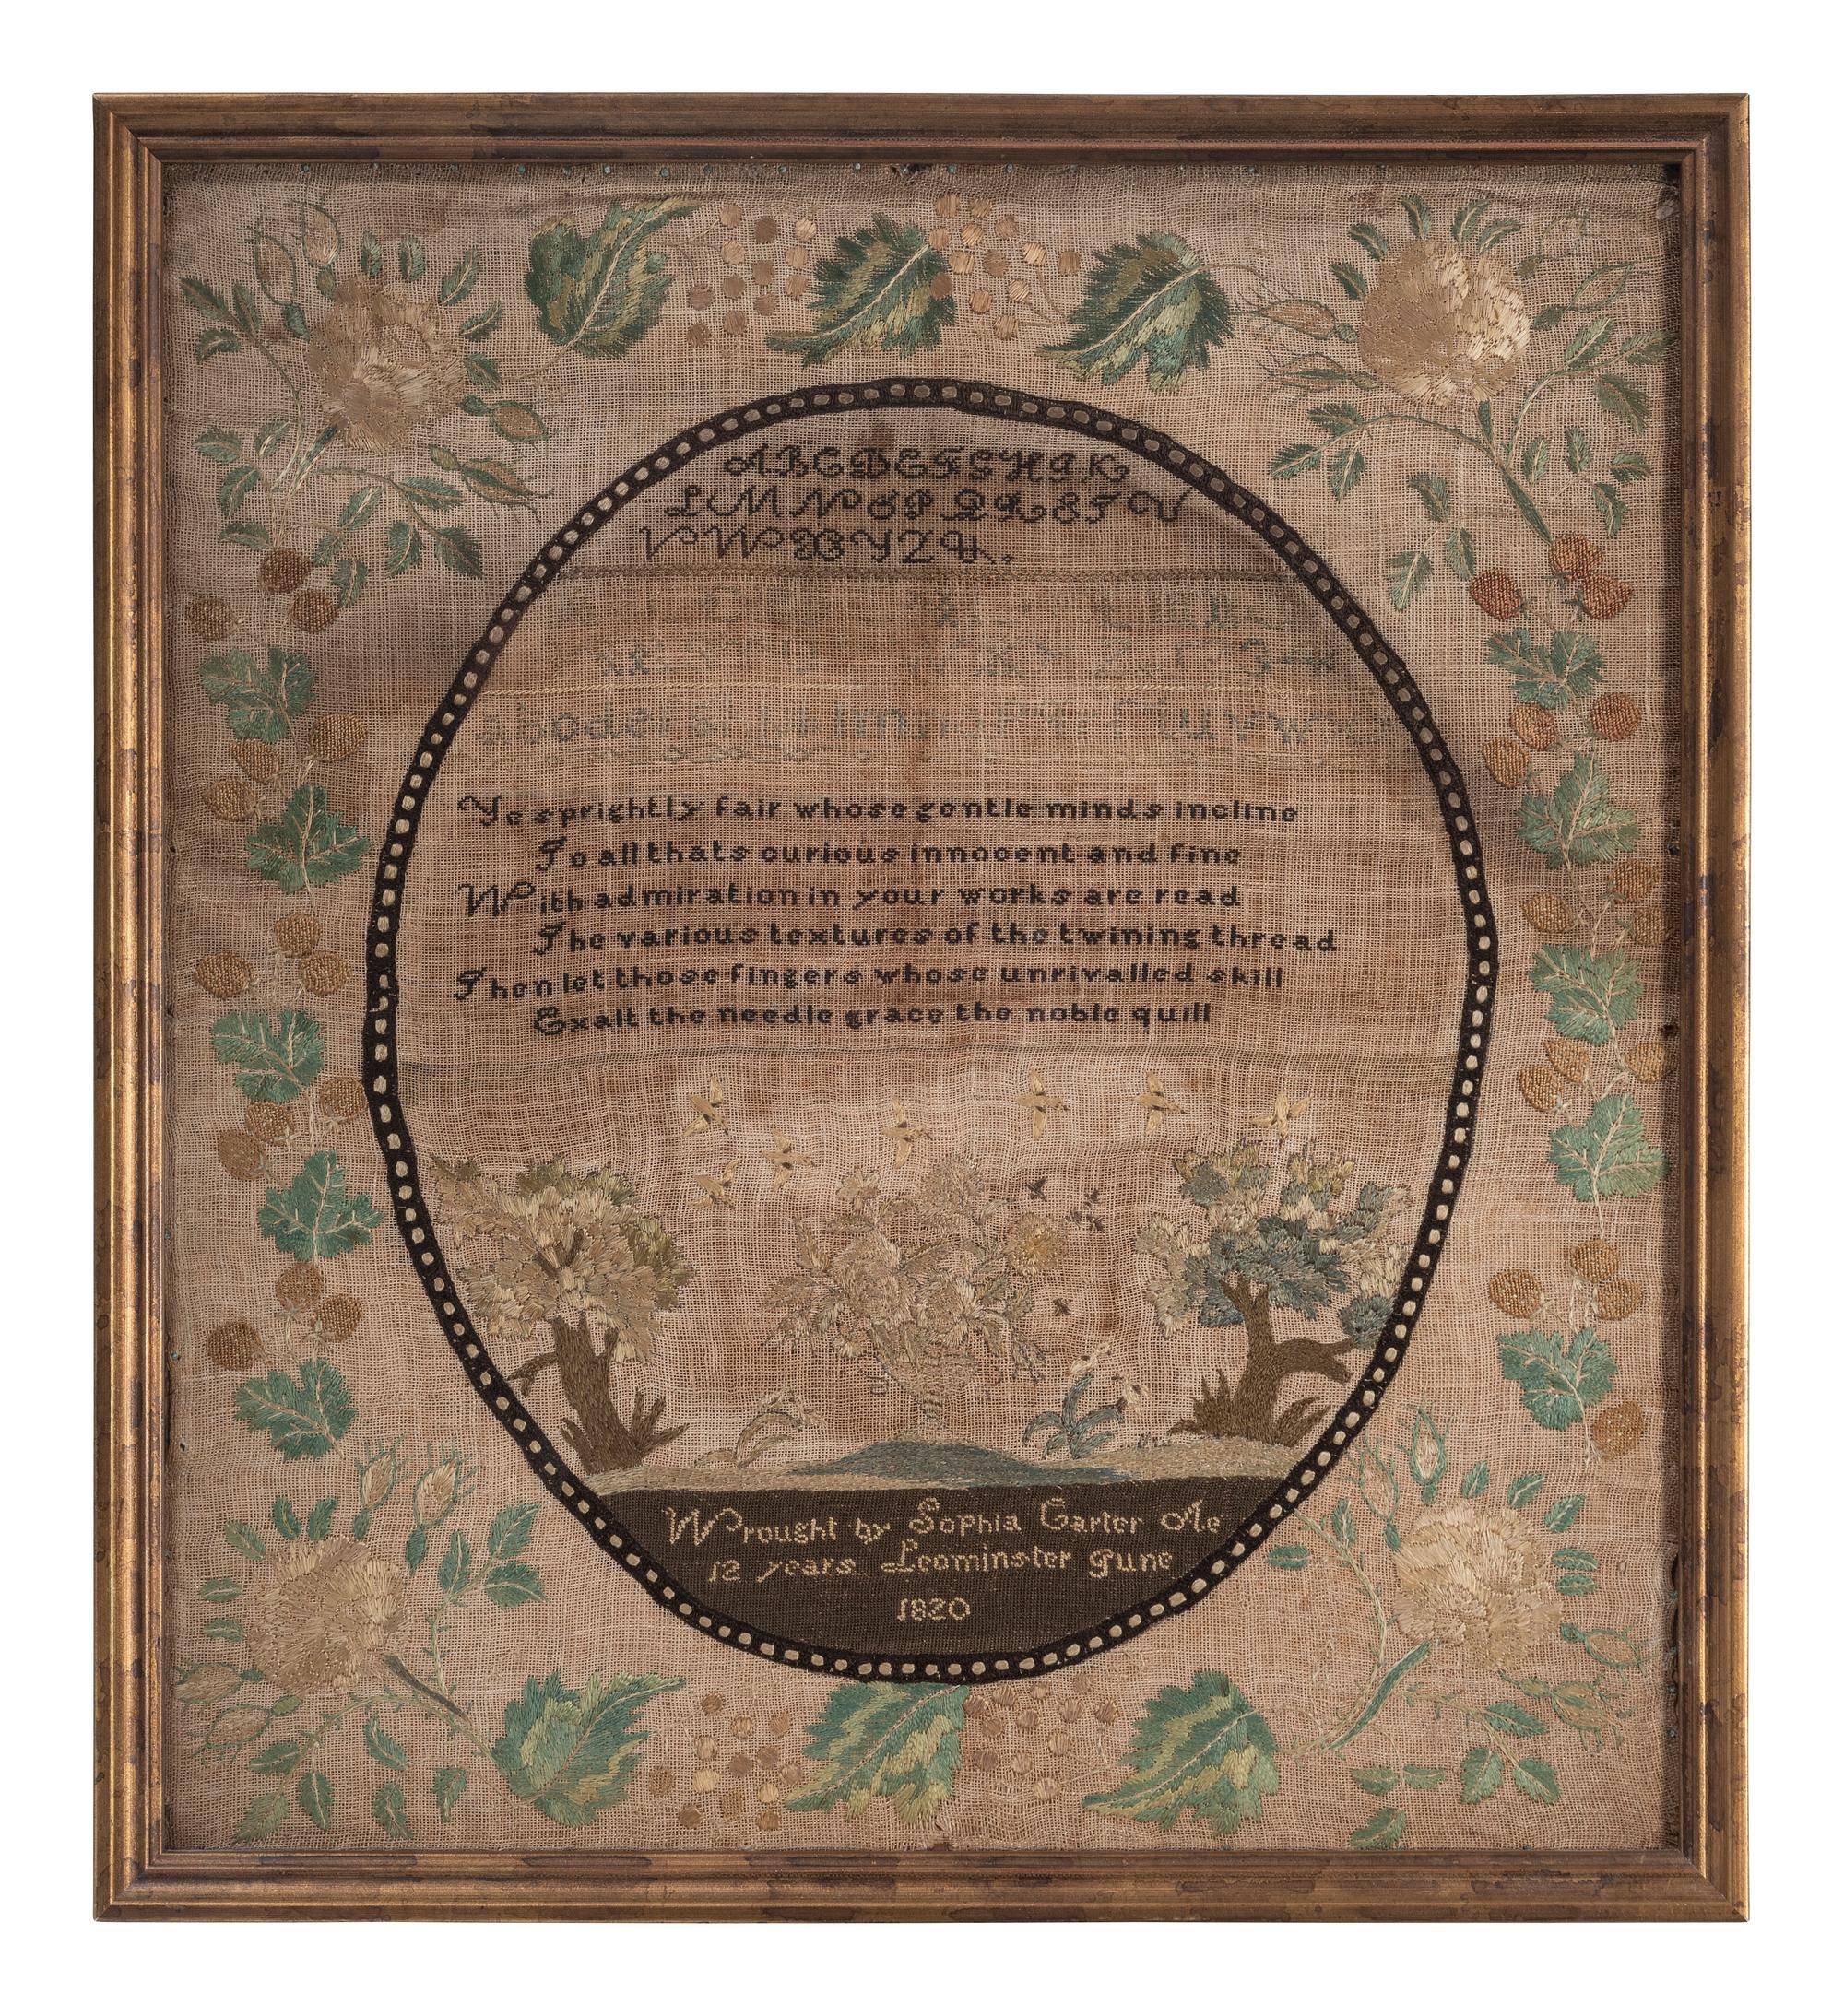 A B C D E F G H I K
L M N O P Q R S T U
V W X Y Z &.
Ye sprightly fair whose gentle minds incline
To all thats curious innocent and fine
With admiration in your works are read
The various textures of the twining thread
Then let those fingers whose unrivalled skill
Exalt the needle grace the noble quill
Wrought by Sophia Carter Æ
12 years Leominster June
1820